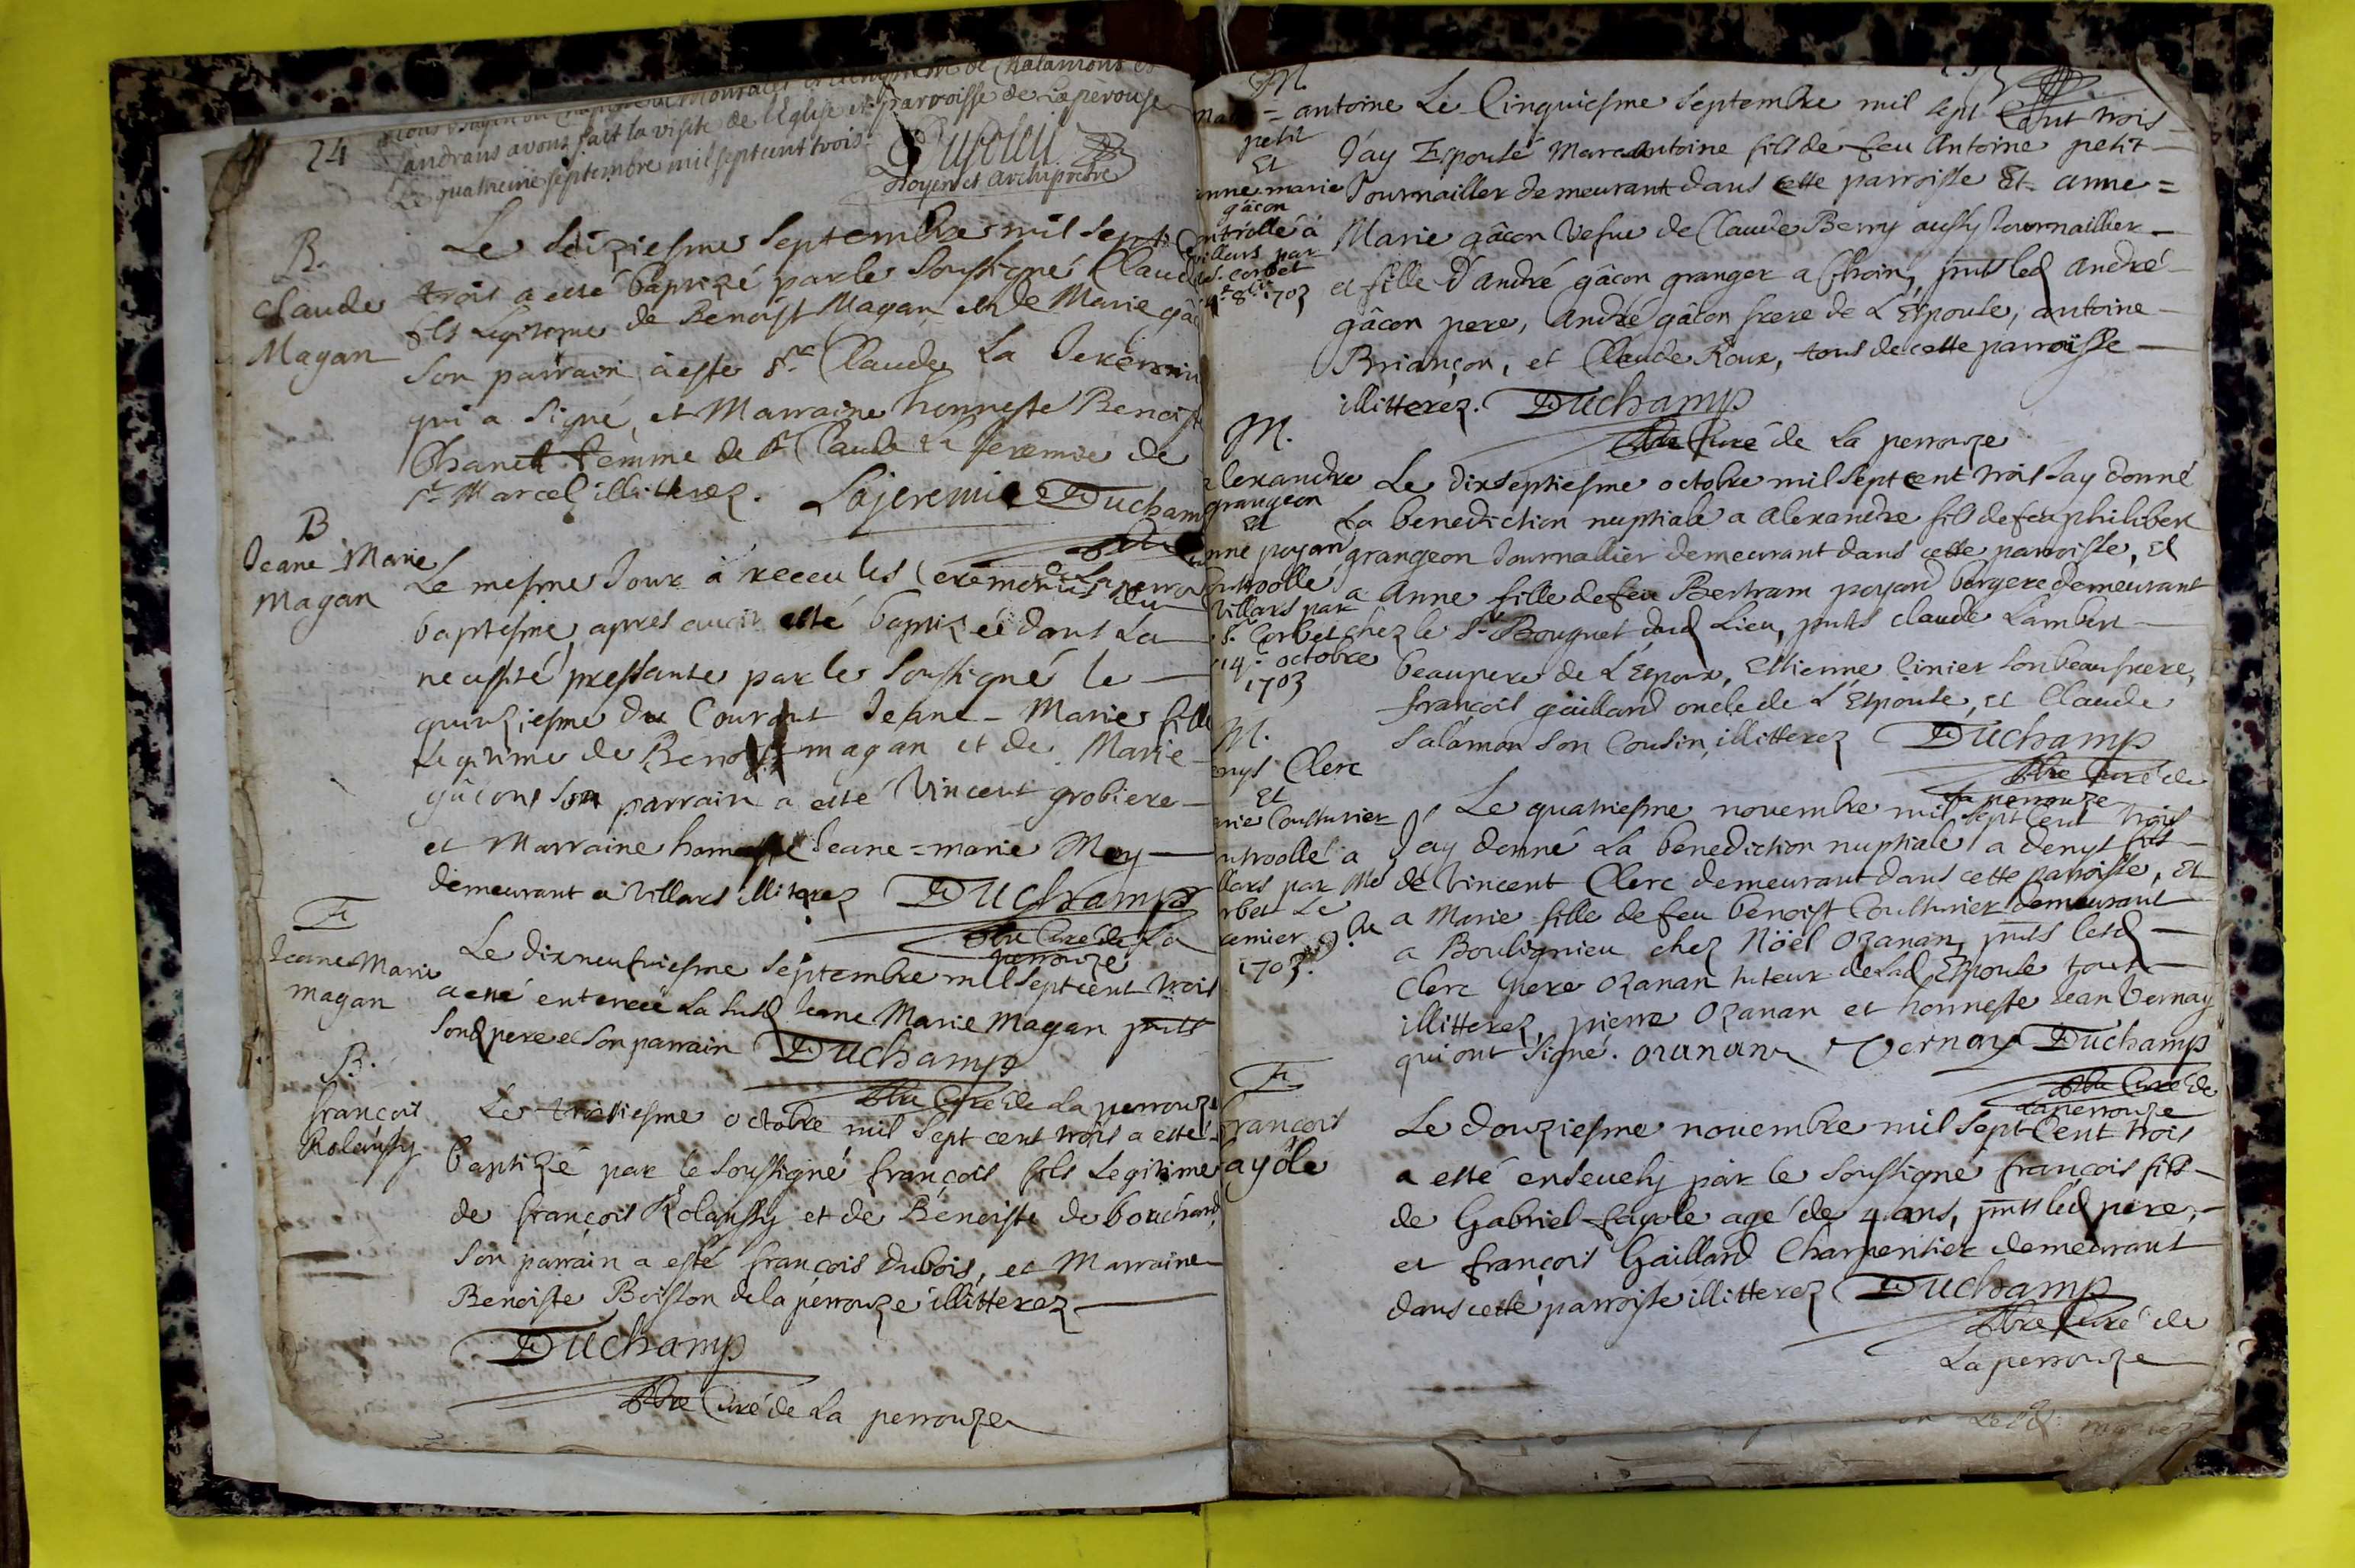 24
chalamont et
sandrans avons fait la visite de l'Eglise et parroisse de Laperouse
Le quatrieme septembre mil sept cent trois.
Doyen et Archiprestre
B.
Claude
Magan
Le seiziesme septembre mil sept
trois a esté baptizé par le soussigné Claude
fils legitime de Benoist Magan et de Marie gâ
son parrain à esté Sr. Claude La Jeremie
qui a signé, et Marraine honneste Benoist
Chanel femme de Sr Claude La Jeremie de
St Marcel illitterez. Lajeremie Duchamp
B
Jeane Marie
Magan
Le mesme Jour à receu les ceremonies du
baptesme, apres avoir esté baptizéé dans La
necessité pressante par le soussigné le
quinziesme du Courant Jeane-Marie fille
Legitime de Benoist magan et de Marie
gâcon son parrain a esté Vincent grobiere
et Marraine honneste Jeane=marie Mey
demeurant a Villars illiterez Duchamp
Pbre Curé de La
perrouze
F
Jeane Marie
magan
Le dixneufviesme septembre mil sept cent trois
a esté enterrée La susd Jeane Marie Magan pnts
sond pere et son parrain Duchamp
Pbre Curé de La perrouze
B.
françois
Rolaussy
Le troisiesme octobre mil sept cent trois a esté
baptizé par le soussigné françois fils Legitime
de françois Rolaussy et de Benoiste de bouchard,
son parrain a esté françois Dubois, et Marraine
Benoiste Boisson de la perrouze illitterez
Duchamp
Pbre Curé de La perrouze
M.
=antoine
petit
Et
anne marie
gâcon
Controllé à
Villars par
S. corbet
1703
Le Cinquiesme septembre mil sept Cent trois
J'ay Espousé Marc antoine fils de feu Antoine petit
Journaillier demeurant dans cette parroisse Et anne=
Marie gâcon Vefue de Claude Berry aussy Journaillier
et fille D'andré gâcon granger a Choin, pnts led andré
gâcon pere, andré gâcon frere de L'Espouse, antoine
Briançon, et Claude Roux, tous de cette parroisse
illitterez. Duchamp
Pbre Curé de La perrouze
M.
alexandre
grangeon
Et
anne poyan
Controlle a
Villars par
S. Corbet
14e octobre
1703
Le dixseptiesme octobre mil sept cent trois Jay donné
La benediction nuptiale a alexandre fils de feu philibert
grangeon Journallier demeurant dans cette parroisse, et
a Anne fille de feu Bertram poyard bergere demeurant
chez le Sr Bouquet dud Lieu, pnts claude Lambert
beaupere de L'Espoux, Estienne Cinier son beau frere,
françois gaillard oncle de L'Espouse, et Claude
salamon son Cousin, illitterez Duchamp
Pbre Curé de
La perrouze
M.
Denys Clerc
Et
marie Coulturier
Controollé a
Villars par Me
corbet Le
1703.
Le quatriesme novembre mil sept Cent trois
J'ay donné La benediction nuptiale a denys fils
de Vincent Clerc demeurant dans cette parroisse, et
a Marie fille de feu benoist Coulturier demeurant
a Bouligneu chez Nöel Ozanan, pnts lesd
Clerc pere Ozanan tuteur de Lad Espouse tous
illitterez, pierre Ozanan et honneste Jean Vernay
qui ont signé. Ozanan Vernay Duchamp
Pbre Curé de
La perrouze
F
françois
fayôle
Le douziesme novembre mil sept Cent trois
a esté ensevely par le soussigné françois fils
de Gabriel fayole agé de 4 ans, pnts led pere,
et françois Gaillard Charpentier demeurant
dans cette parroisse illitterez Duchamp
Pbre Curé de
La perrouze